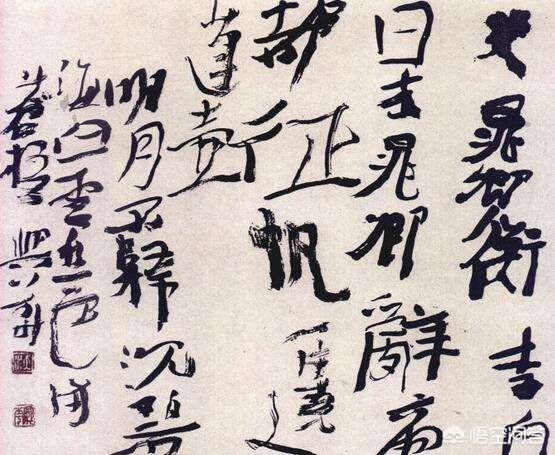 哭晁卿衡 李白
日本晁卿辭帝
都征帆一片遶
蓬壺
明月不歸沈碧
海白雲愁色滿
蒼梧
悟空问答